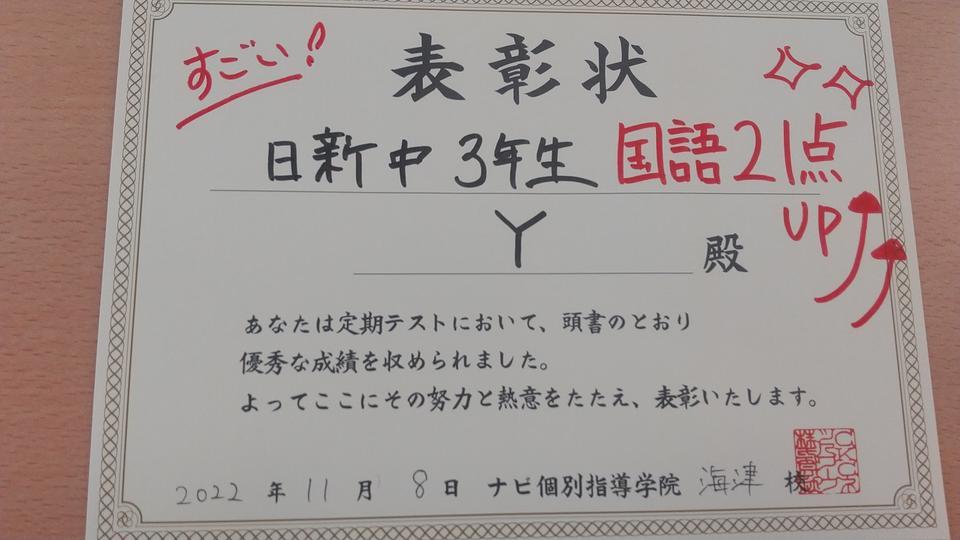 すごい!!
表彰状
日新中 3年生 国語21点
UP
Y 殿
あなたは定期テストにおいて、頭書のとおり
優秀な成績を収められました。
よってここにその努力と熱意をたたえ、表彰いたします。
2022 年 11 月 8 日 ナビ個別指導学院 海津 校